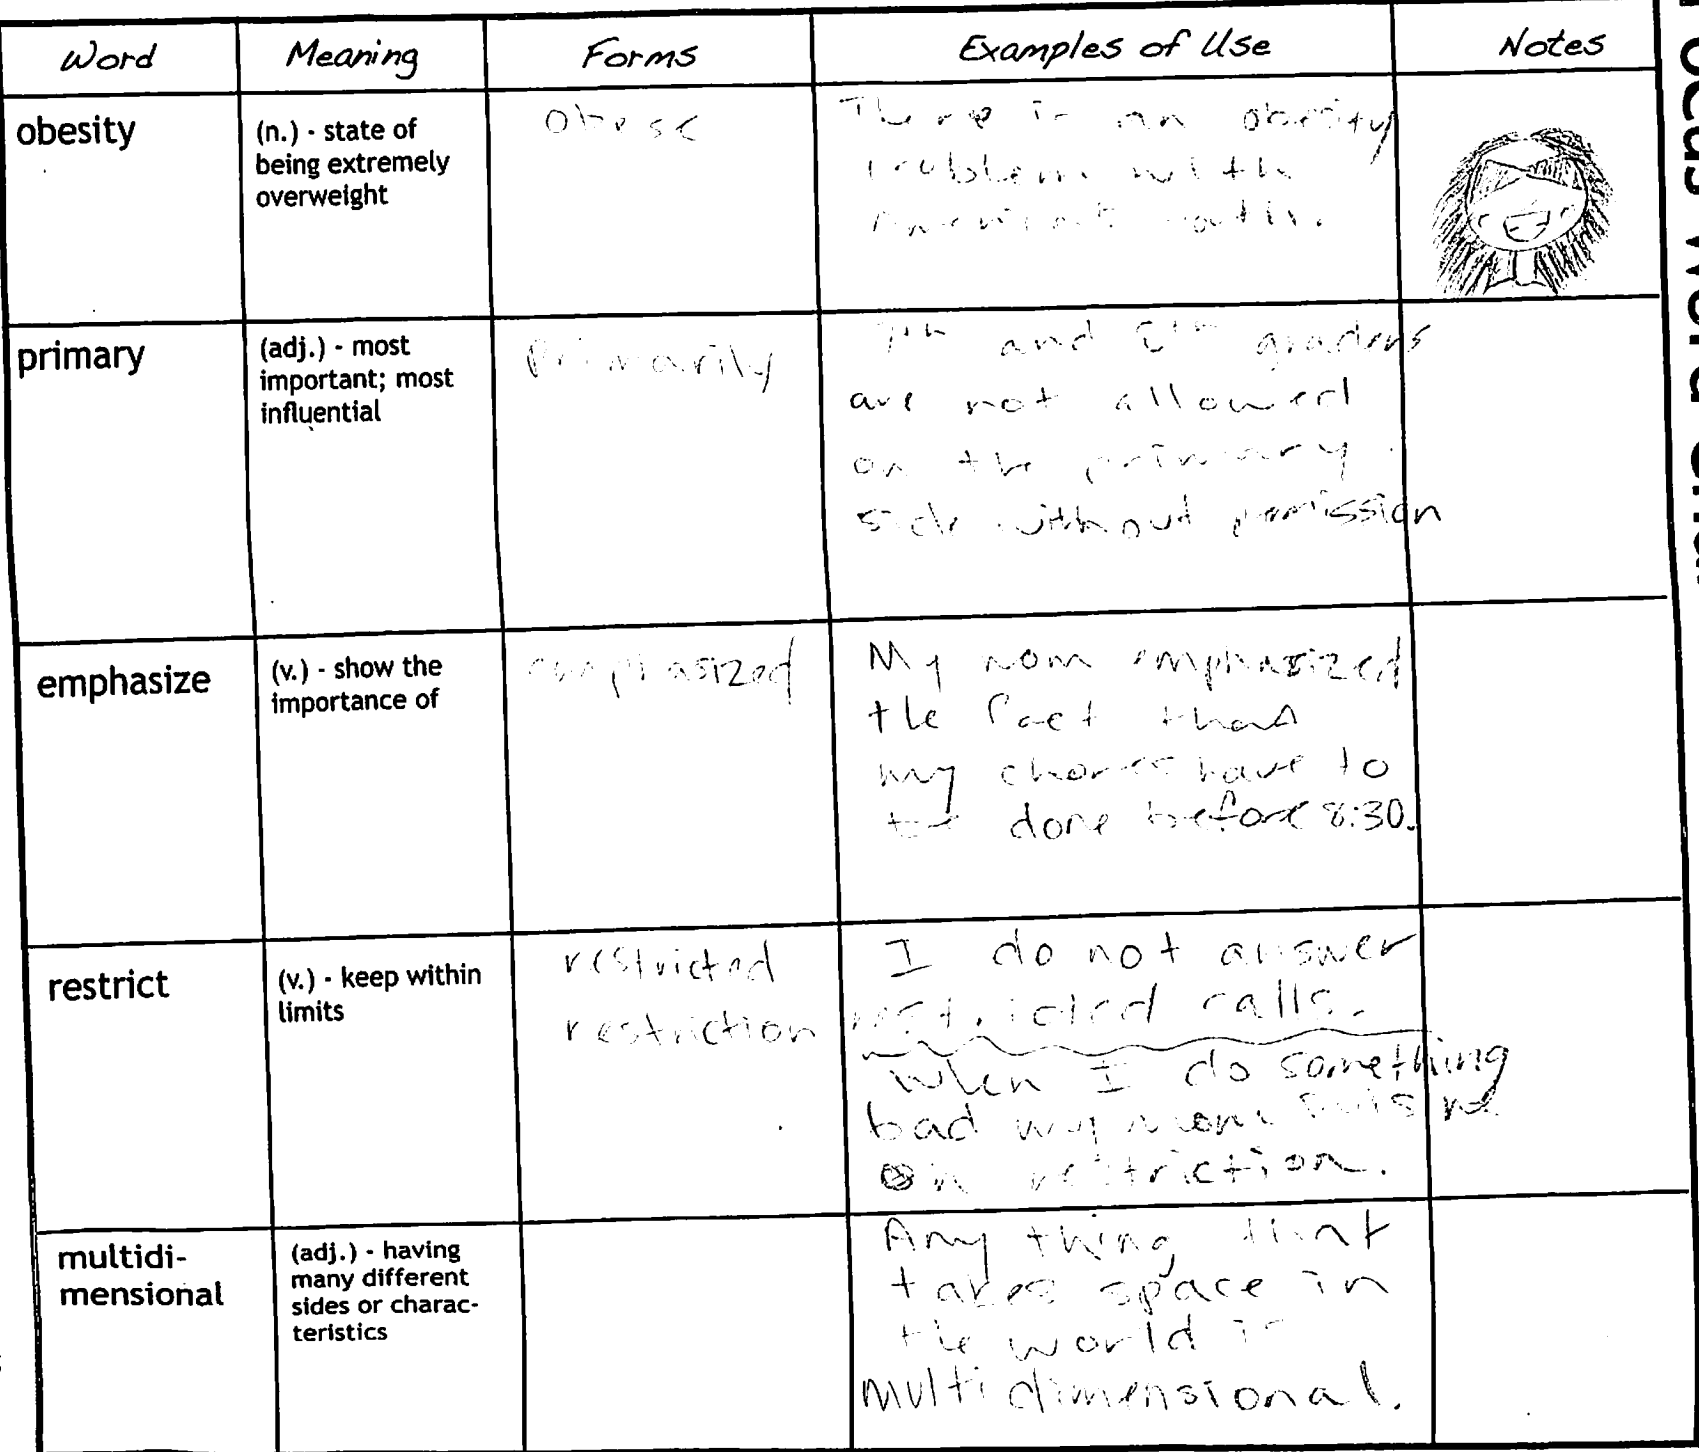 Word Meaning Forms Examples of Use Notes
obesity
(n.) - state of
being extremely
overweight
obese
There is an obesity
problem with
America's youth.
primary
(adj.) - most
important; most
influential
primarily
7th and 8th graders
are not allowed
on the primary
side without permission
emphasize
(v.) - show the
importance of
emphasized
My mom emphasized
the fact that
my chores have to
be done before 8:30.
restrict
(v.) - keep within
limits
restricted
restriction
I do not answer
restricted calls.
When I do something
bad my mom puts me
on restriction.
multidi-
mensional
(adj.) - having
many different
sides or charac-
teristics
Any thing that
takes space in
the world is
multidimensional.